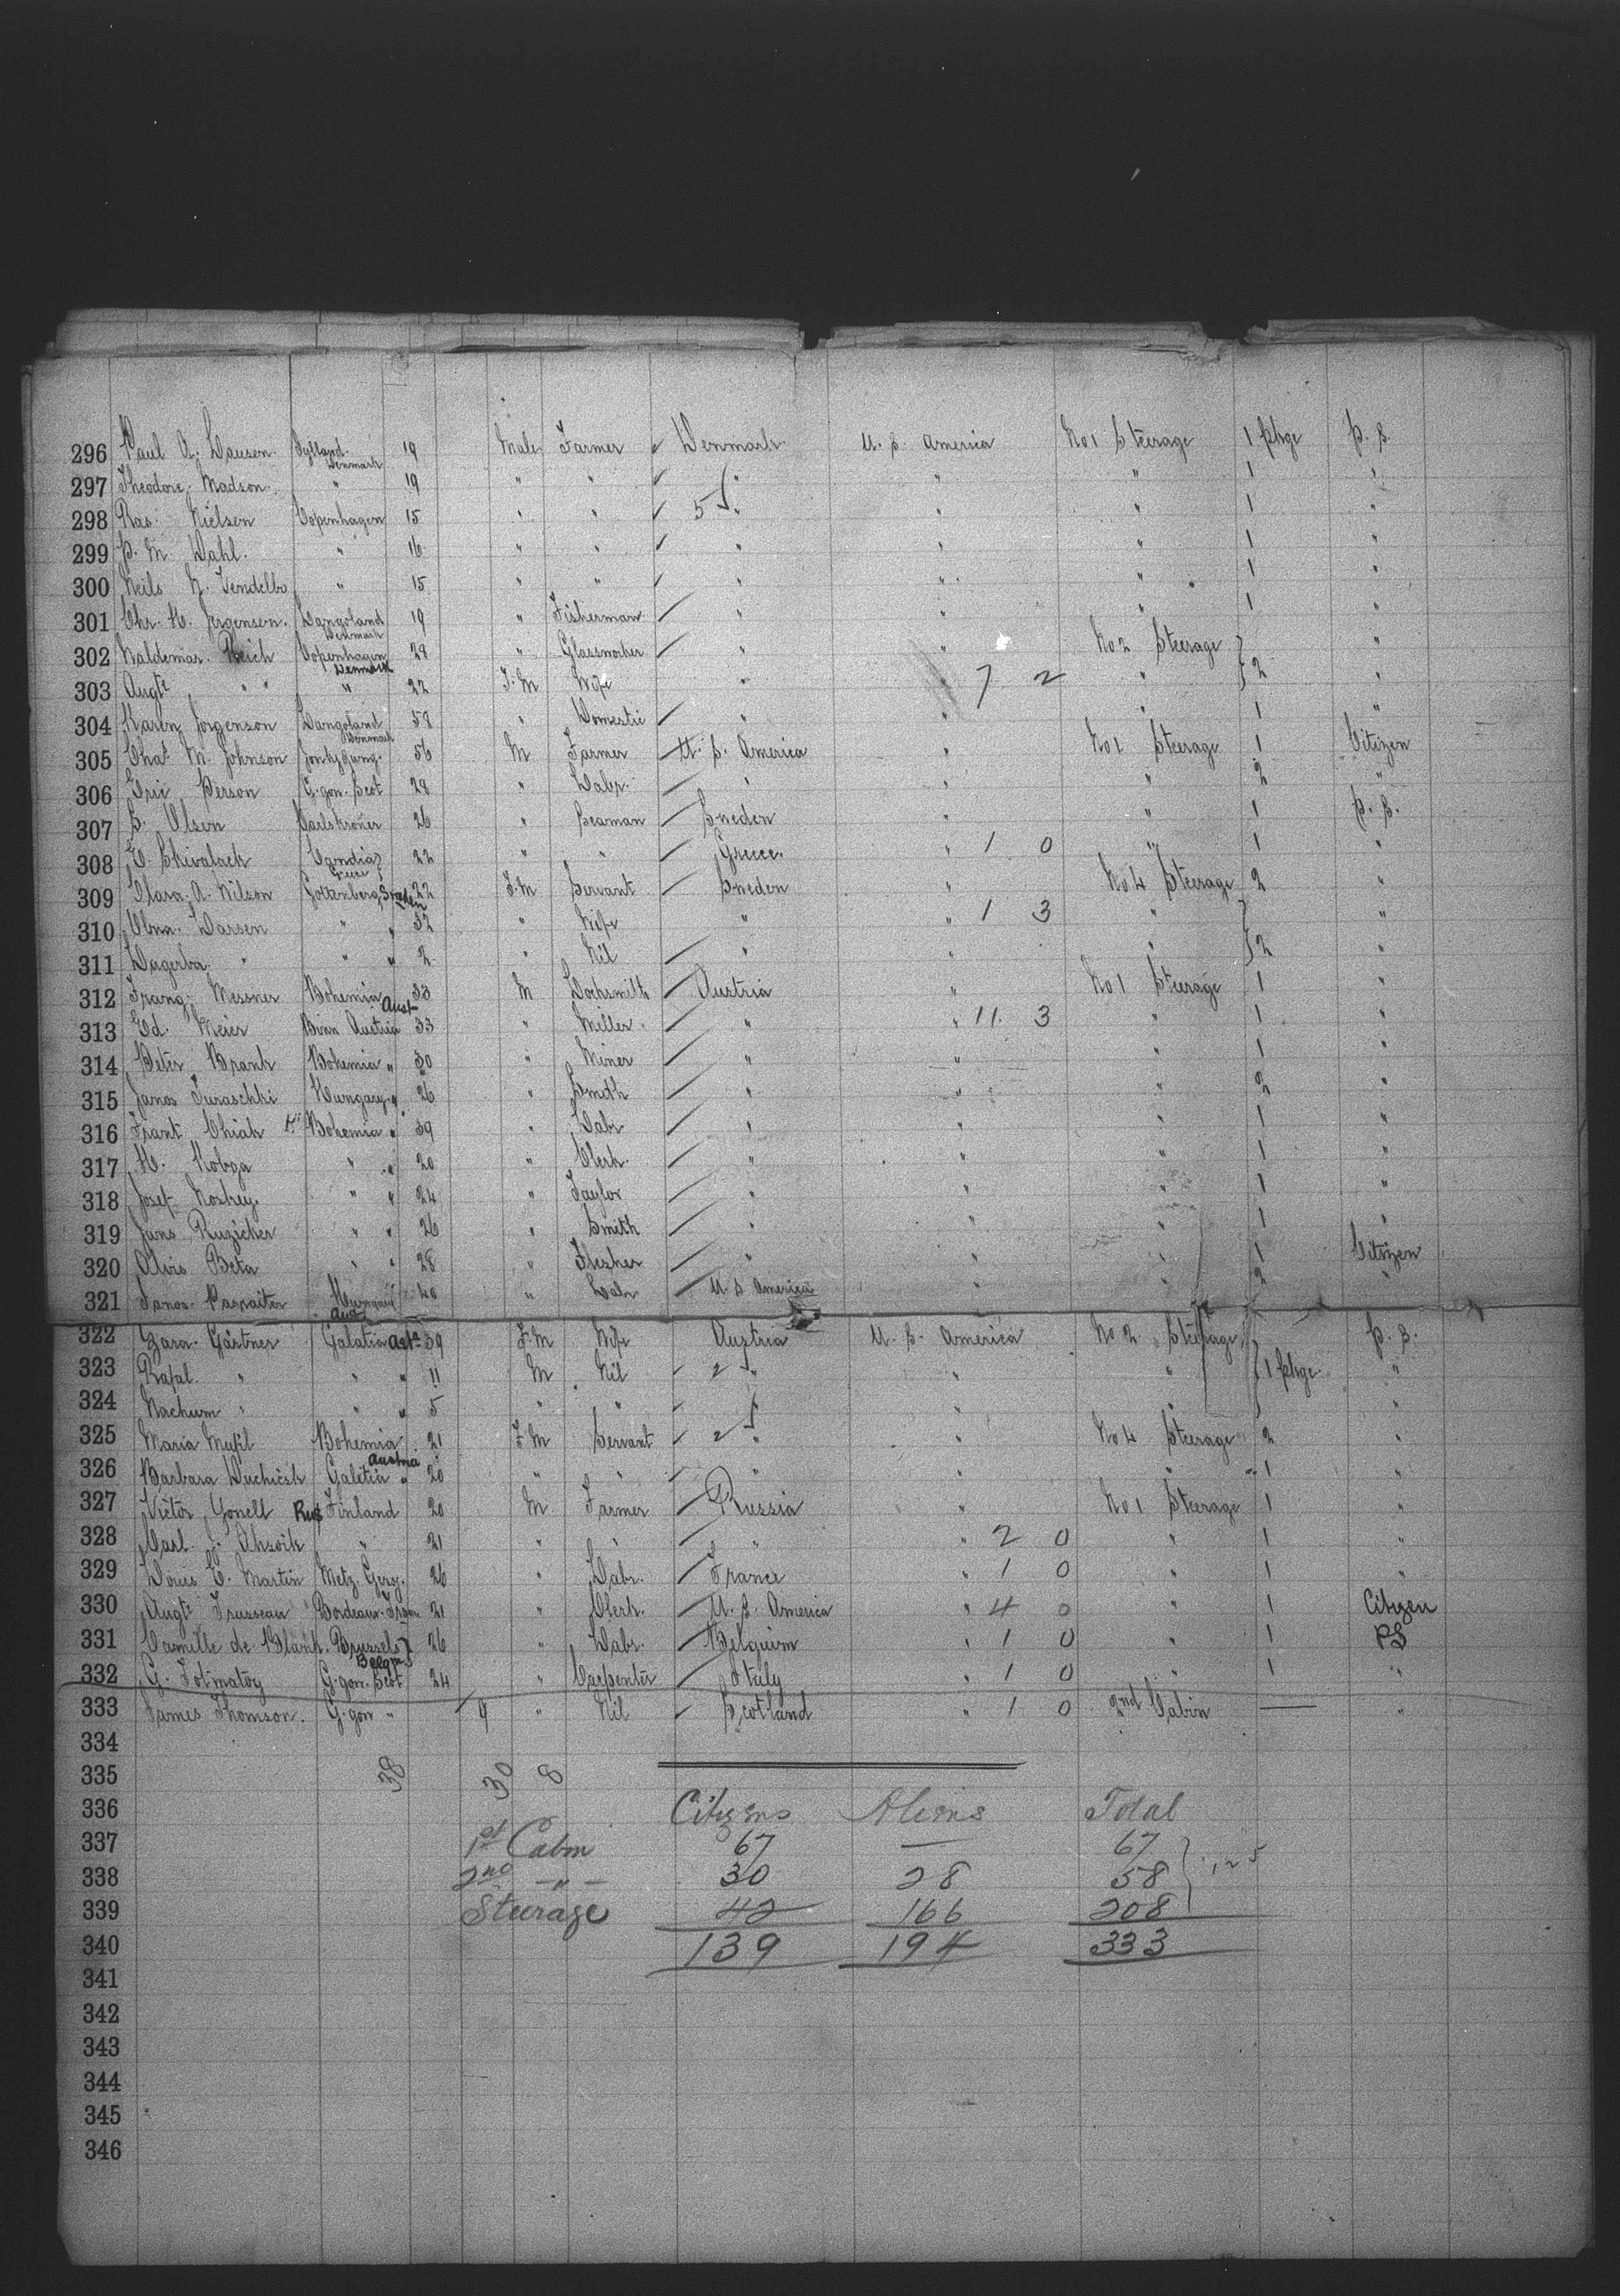 296 Paul A. Lausen Jylland Denmark 19 Male Farmer Denmark U. S. America No 1 Steerage 1 pkge P. S.
297 Theodore Madson " 19 " " " " " 1 "
298 Ras. Nielsen Copenhagen 15 " " 5 " " " 1 "
299 P. M Dahl. " 16 " " " " " 1 "
300 Neils N. " 15 " " " " " 1 "
301 Chr. H. Jorgensen. Langoland Denmark 19 " Fisherman " " " 1 "
302 Waldemar Reich Copenhagen Denmark 28 " Glassworker " " No 2 Steerage "
303 Augte " " 22 F. M Wife " " 7 2 " 2 "
304 Karen Jorgenson Langoland Denmark 58 " Domestic " " " 1 "
305 Chas M. Johnson 56 M Farmer U. S. America " No 1 Steerage 1 Citizen
306 Eric Person G.gow. Scot 28 " Labr. " " " 2 "
307 P. Olsen 26 " Seaman Sweden " " 1 P. S.
308 Candia Greece 22 " " Greece. " 1 0 " 1 "
309 Clara. A. Nilson Gottenberg Sweden 22 F. M Servant Sweden " No 4 Steerage 2 "
310 Larsen " " 32 " Wife " " 1 3 " "
311 " " " 2 " Nil " " " 2 "
312 Franz Messner Bohemia Aust 33 M Locksmith Austria " No 1 Steerage 1 "
313 Ed. Meier Austria 33 " Miller " " 11. 3 " 1 "
314 Peter Bohemia " 30 " Miner " " " 1 "
315 Janos Hungary " 26 " Smith " " " 2 "
316 Frant Bohemia " 39 " Labr " " " 1 "
317 H. Kobga " " 20 " Clerk. " " " 1 "
318 Josef " " 24 " Taylor " " " 1 "
319 Jans " " 26 " Smith " " " 1 "
320 Beta " " 28 " Flesher " " " 1 Citizen
321 Janos Hungary Aust 40 " Labr U. S America " " 2 "
322 Zara. Gärtner Galatia Ast 39 F. M Wife Austria U. S. America No 2 Steerage P. S.
323 Rafal. " " " 11 M Nil 2 " " " 1 pkge "
324 Nachum " " " 5 " " " " " "
325 Maria Musil Bohemia Austria 21 F M Servant 2 " " No 4 Steerage 2 "
326 Barbara Galitia " 20 " " " " " 1 "
327 Victor Gonell Rus Finland 20 M Farmer Russia " No 1 Steerage 1 "
328 Carl J. " 21 " " " " 2 0 " 1 "
329 Louis E. Martin Metz. Gery. 26 " Labr. France " 1 0 " 1 "
330 Augte Trusseau Bordeaux. 21 " Clerk. U. S. America " 4 0 " 1 Citizen
331 Camille de Brussels Belgm 26 " Labr. Belguim " 1 0 " 1 PS
332 G. G.gow. Scot 24 " Carpenter Italy " 1 0 " 1 "
333 James Thomson. G.gow " 9 " Nil Scotland " 1 0 2nd Cabin — "
334
335 38 30 8
336 Citizens Aliens Total
337 1st Cabin 67 — 67
338 2nd — " — 30 28 58 125
339 Steerage 42 166 208
340 139 194 333
341
342
343
344
345
346